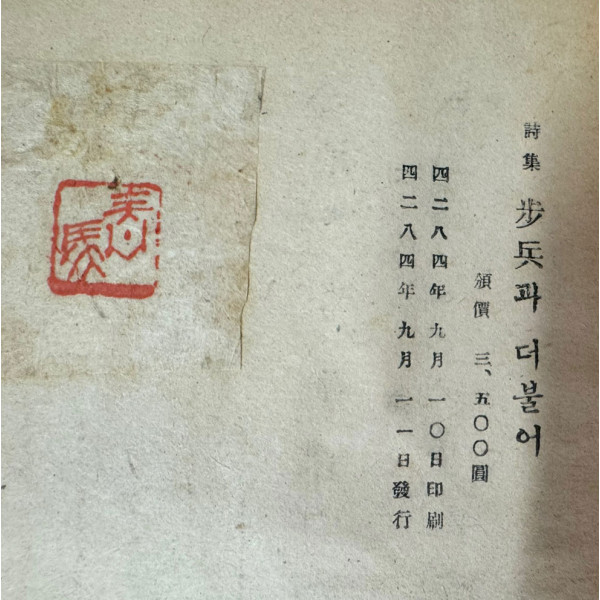 詩集 步兵과 더불어
頒價 三、五〇〇圓
四二八四年 九月 一〇日印刷
四二八四年 九月 一一日發行
靑馬